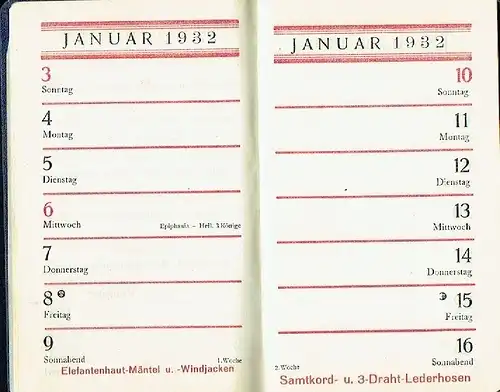 JANUAR 1932
3
Sonntag
4
Montag
5
Dienstag
6
Mittwoch Epiphania - Heil. 3 Könige
7
Donnerstag
8
Freitag
9
Sonnabend 1. Woche
Elefantenhaut-Mäntel u. -Windjacken
JANUAR 1932
10
Sonntag
11
Montag
12
Dienstag
13
Mittwoch
14
Donnerstag
15
Freitag
16
2. Woche Sonnabend
Samtkord- u. 3-Draht-Lederhosen